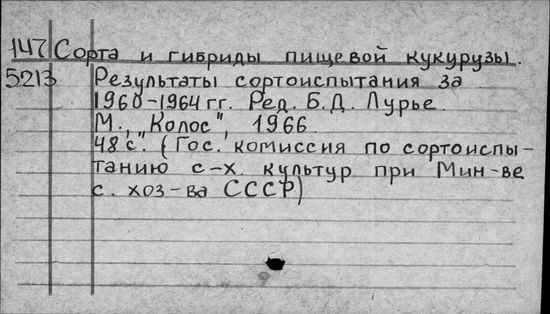 147 Сорта и гибриды пищевой кукурузы.
5213 Результаты сортоиспытания за
1960-1964 гг. Ред. Б.Д. Лурье
М., "Колос", 1966.
48 с. (Гос. комиссия по сортоиспы-
танию с-х. культур при Мин-ве
с. хоз-ва СССР)